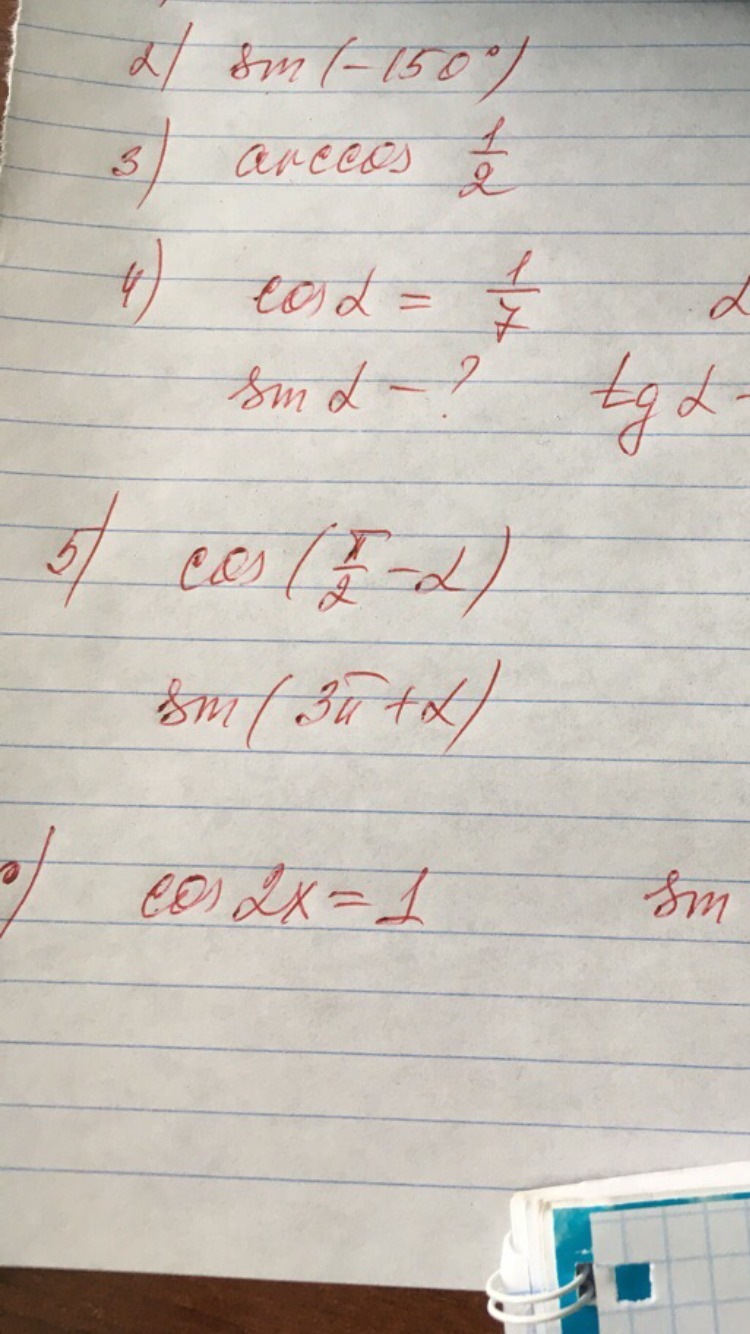 2) sin (-150°)
3) arccos 1/2
4) cos α = 1/7 α
sin α - ? tg α -
5) cos (π/2 - α)
sin (3π + α)
) cos 2x = 1 sin